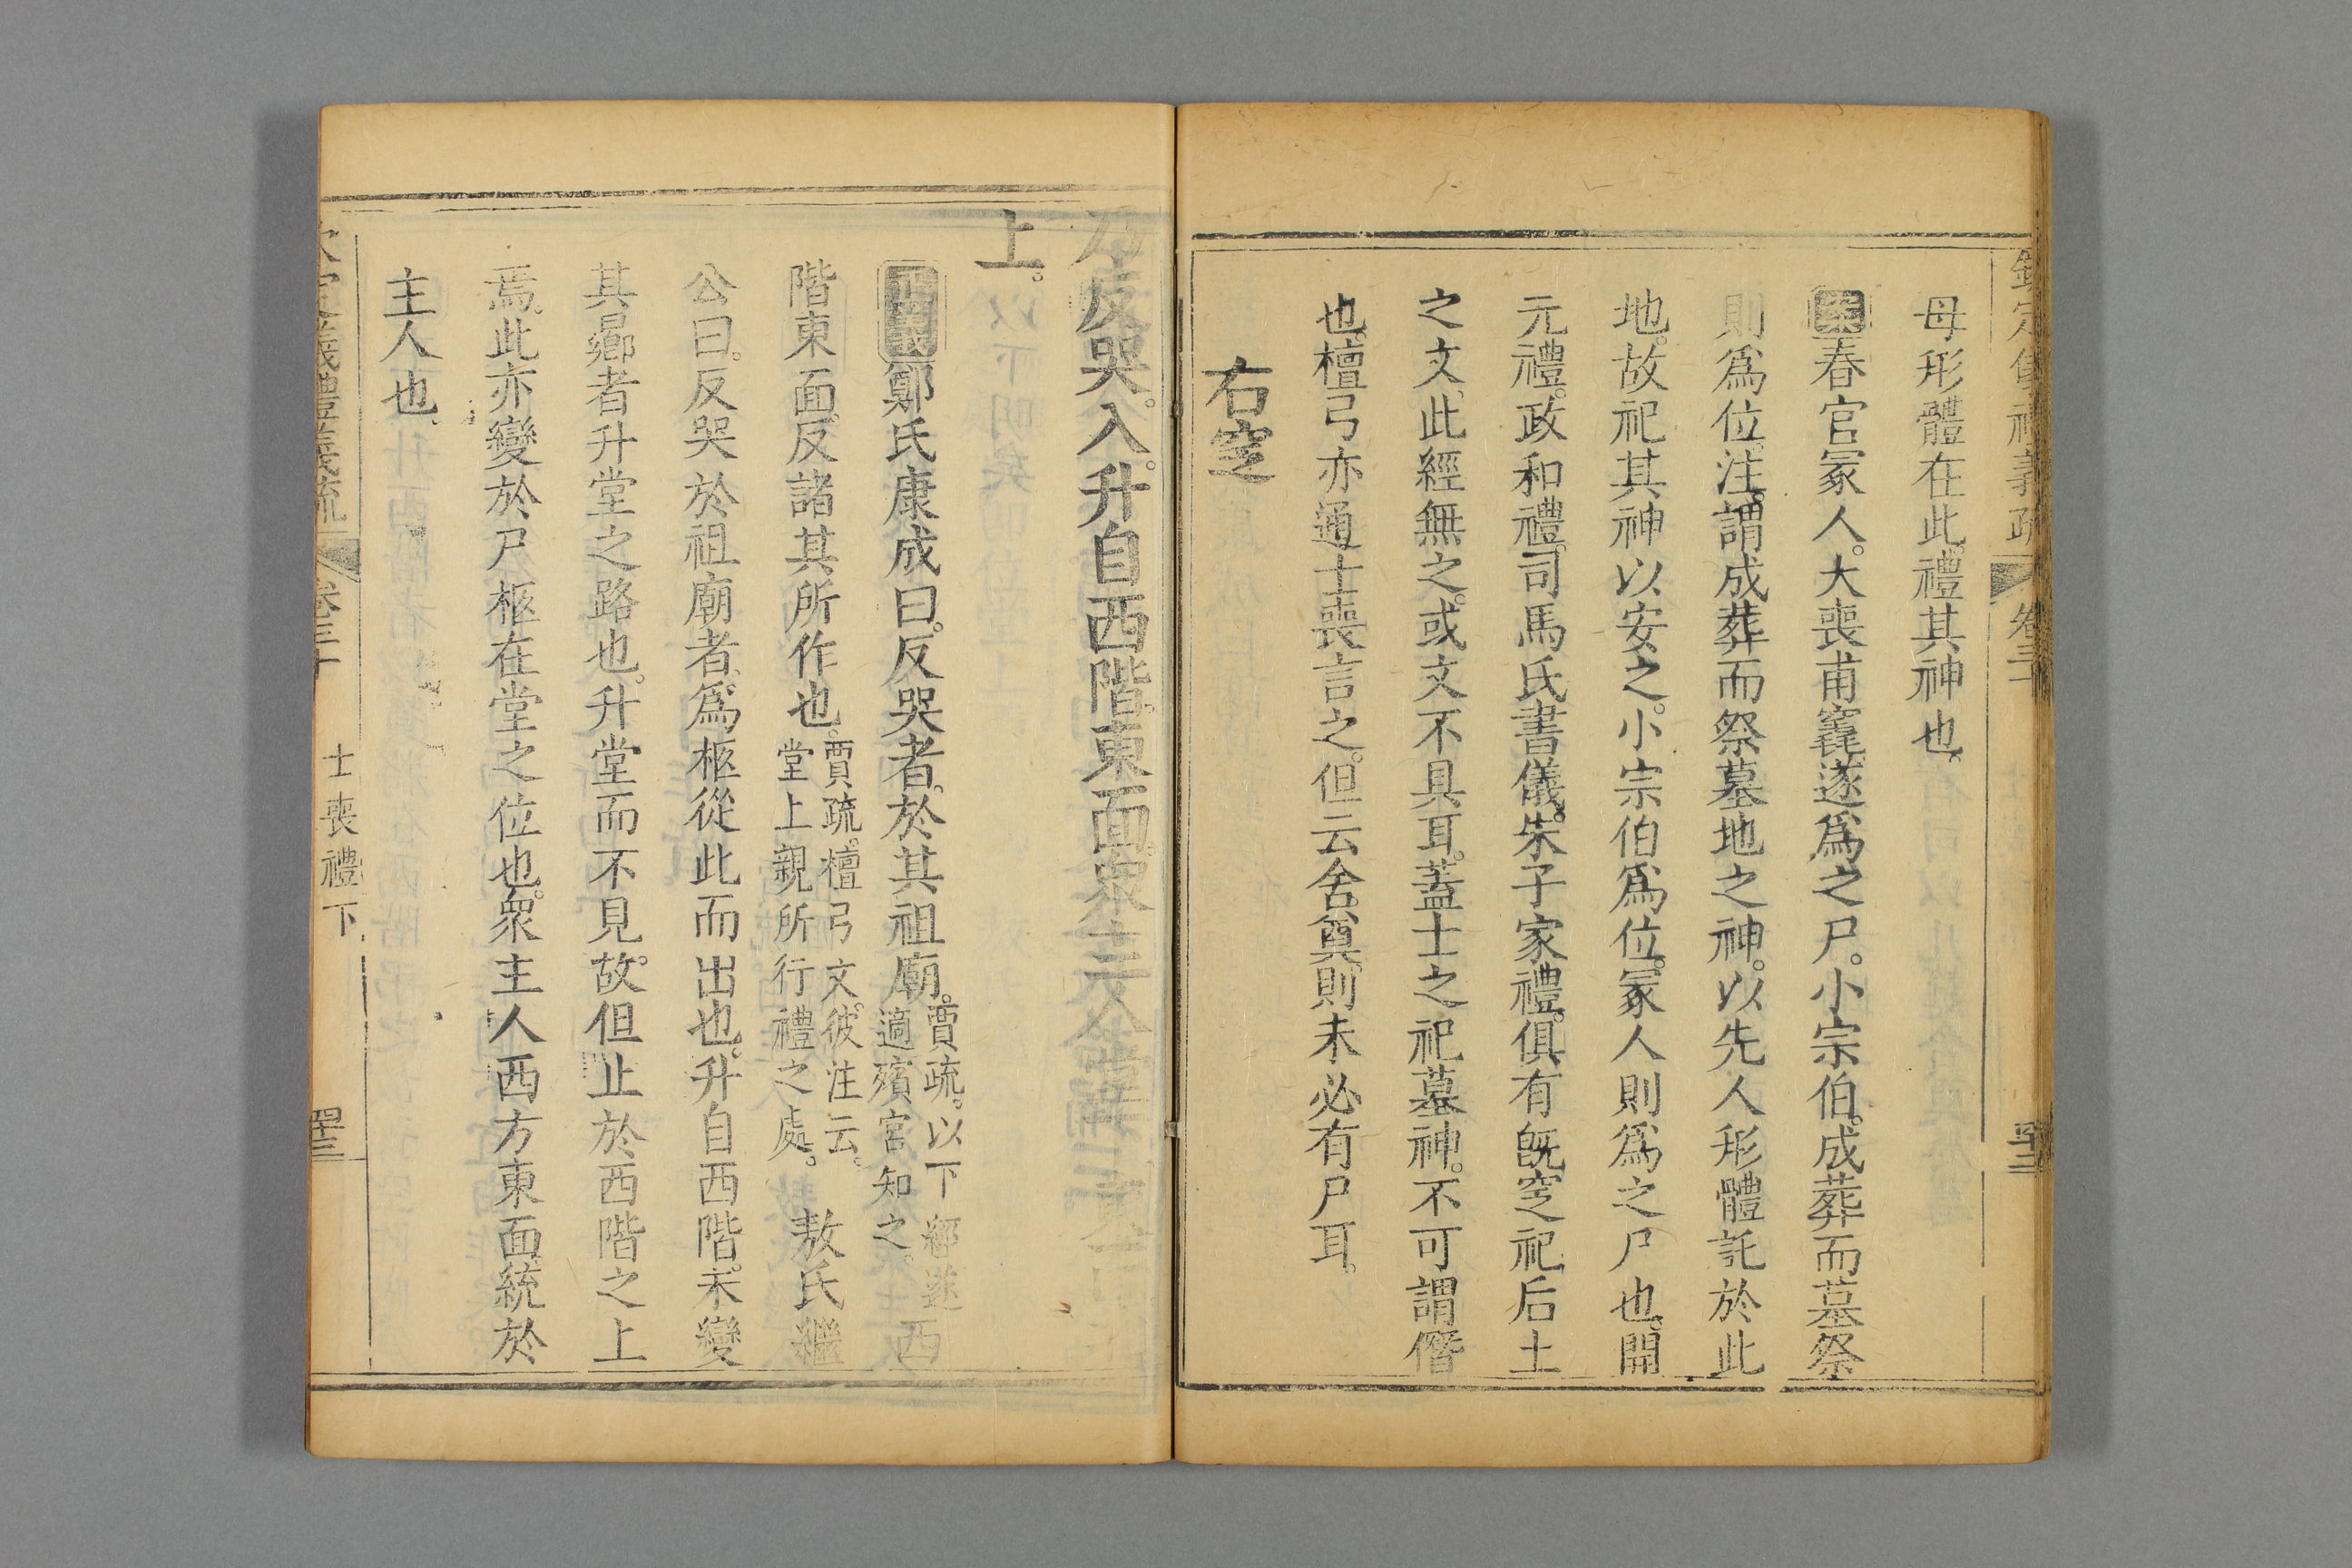 母形體在此。禮其神也。
案春官冢人。大喪甫竁。遂爲之尸。小宗伯。成葬而墓祭
則爲位。注。謂成葬而祭墓地之神。以先人形體託於此
地。故祀其神以安之。小宗伯爲位。冢人則爲之尸也。開
元禮。政和禮。司馬氏書儀。朱子家禮。俱有旣窆祀后土
之文。此經無之。或文不具耳。蓋士之祀墓神。不可謂僭
也。檀弓亦通士喪言之。但云舍奠。則未必有尸耳。
右窆
乃反哭。入。升自西階。東面。衆主人堂下東
上。
正義鄭氏康成曰。反哭者。於其祖廟。
賈疏。以下經遂
適殯宮知之。
西
階東面。反諸其所作也。
賈疏。檀弓文。彼注云。
堂上親所行禮之處。
敖氏繼
公曰。反哭於祖廟者。爲柩從此而出也。升自西階。未變
其曏者升堂之路也。升堂而不見。故但止於西階之上
焉。此亦變於尸柩在堂之位也。衆主人西方東面。統於
主人也。
欽定儀禮義疏 卷三十 士喪禮下 四十三